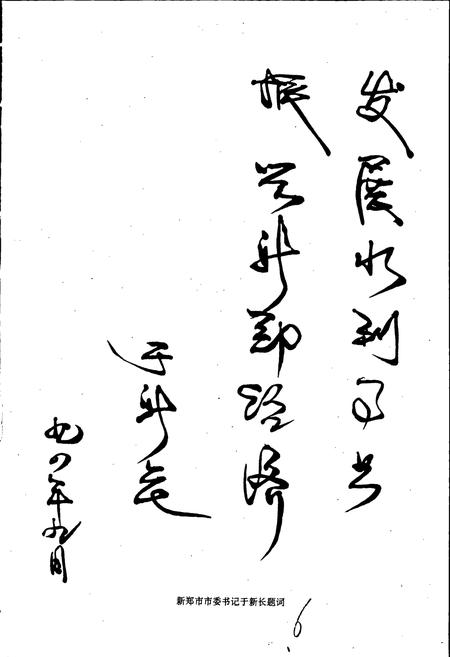 发展水利事业
振兴新郑经济
于新长
九四年九月
新郑市市委书记于新长题词
6